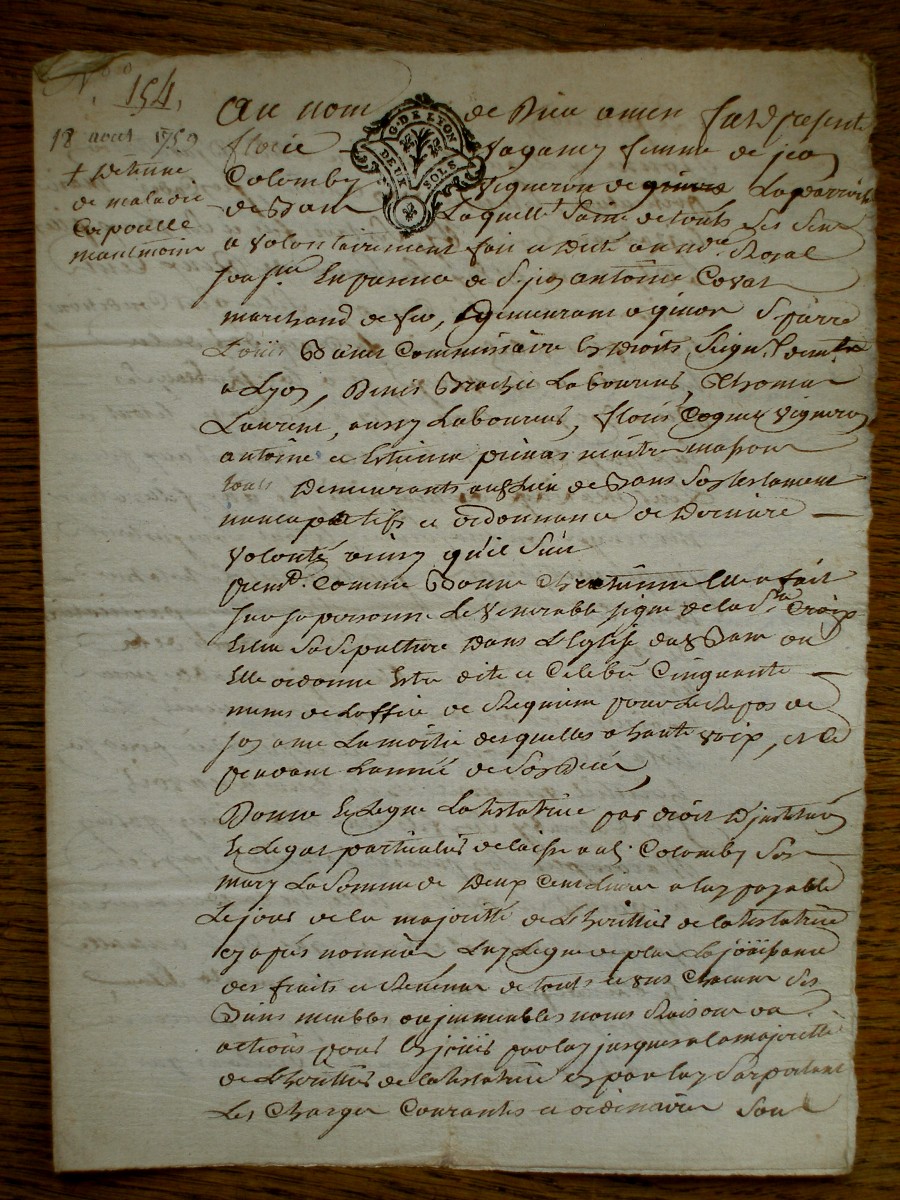 154
18 aout 1752
+ detenue
de maladie
Corporelle
neantmoins
G. DE LYON
DEUX SOLS
Au nom de Dieu amen fut presente
florie Vaganey femme de jean
Colomby Vigneron de givors La parroisse
de Bans Laquelle Saine de touts Ses Sens
a volontairement fait et dicté au no.re Royal
sous.né En presence de S. jean antoine Coval
marchand de fer, demeurant a givors S. pierre
Loüis Commissaire Es droits Seign.x demt
a Lyon, Denis Brachet Laboureur, Thomas
Laurent, aussy Laboureur, floris Vigneron
antoine et Estienne maitre masson
touts Demeurants au lieu de Bans Son testament
nuncupatif et ordonnance de Derniere
Volonté ainsy qu'il Suit
prem.t Comme Bonne Chretienne Elle a fait
sur sa personne Le Venerable signe de la S.te Croix
Eslu Sa Sepulture Dans L'Eglise dud. Bans ou
Elle ordonne Estre dite et Celebré Cinquante
messes de L'office de Requiem pour Le Repos de
son ame La moitié desquelles a haute voix, et Ce
pendant L'année de Son Decés,
Donne et Legue La testatrice par droit D'institution
et Legat particulier delaisse aud. Colomby Son
mary La Somme de Deux Cent Livres a luy payable
Le jour de La majoritté de L'herittier de la testatrice
cy aprés nommée Luy Legue de plus La joüissance
des fruits et Revenus de touts et uns Chacuns Ses
Biens meubles ou immeubles noms Raisons ou
actions pour En joüir par luy jusques a la majoritté
de L'herittier de la testatrice en par luy Suportant
Les Charges Courantes et ordinaires Sans